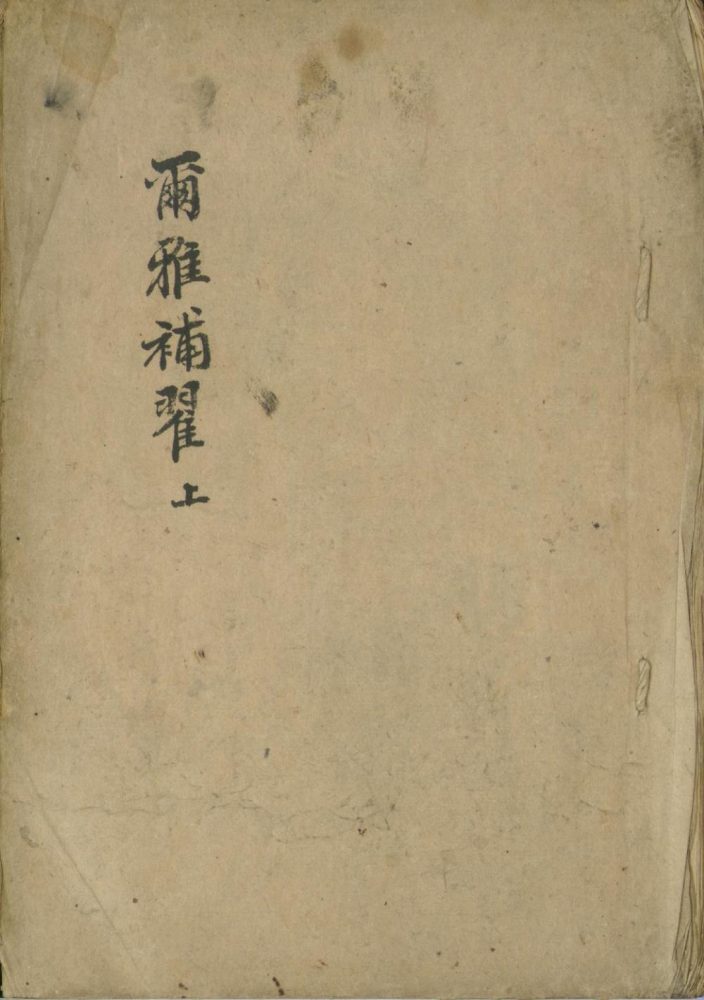 爾雅補翟 上